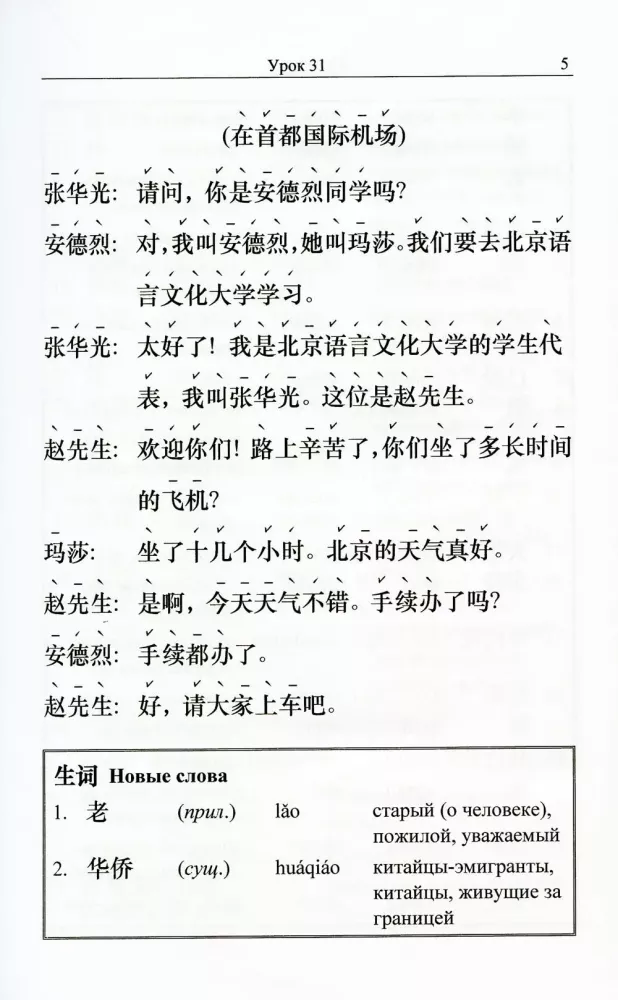 Урок 31 5
(在首都国际机场)
张华光: 请问，你是安德烈同学吗?
安德烈: 对，我叫安德烈，她叫玛莎。我们要去北京语
言文化大学学习。
张华光: 太好了! 我是北京语言文化大学的学生代
表，我叫张华光。这位是赵先生。
赵先生: 欢迎你们! 路上辛苦了，你们坐了多长时间
的飞机?
玛莎: 坐了十几个小时。北京的天气真好。
赵先生: 是啊，今天天气不错。手续办了吗?
安德烈: 手续都办了。
赵先生: 好，请大家上车吧。
生词 Новые слова
1. 老 (прил.) lǎo старый (о человеке),
пожилой, уважаемый
2. 华侨 (сущ.) huáqiáo китайцы-эмигранты,
китайцы, живущие за
границей